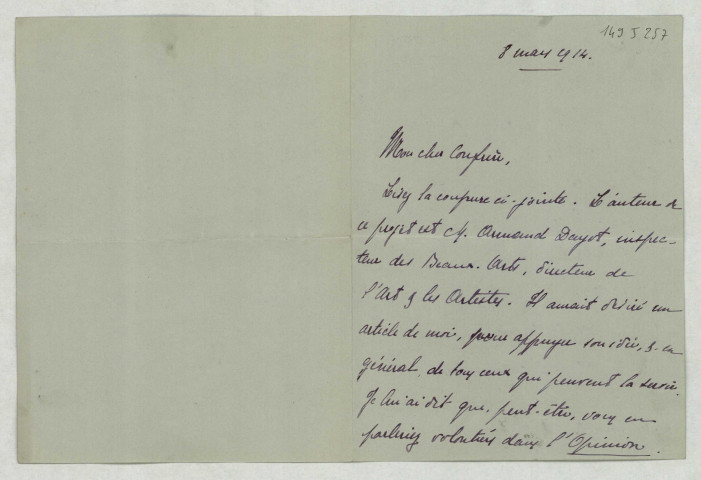 149 J 257
8 mars 1914.
Mon cher Confrère,
Lisez la coupure ci-jointe. L'auteur de
ce projet est M. Armand Dayot, inspec-
teur des Beaux-Arts, directeur de
l'Art & les Artistes. Il aurait désiré un
article de moi, pour appuyer son idée, & en
général, de tous ceux qui peuvent la servir.
Je lui ai dit que, peut-être, vous en
parleriez volontiers dans l'Opinion.